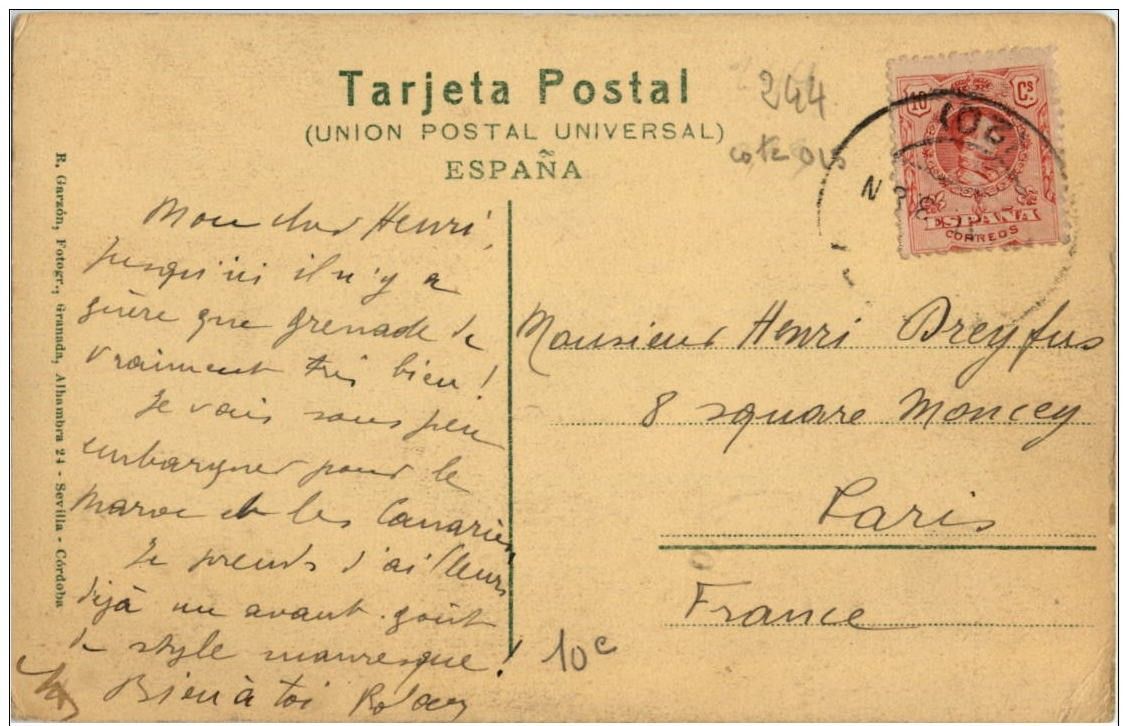 Tarjeta Postal
(UNION POSTAL UNIVERSAL)
ESPAÑA
R. Garzón, Fotogr., Granada, Alhambra 24 - Sevilla - Córdoba
244
10 Cs
ESPAÑA
CORREOS
Mon cher Henri,
Jusqu'ici il n'y a
guère que grenade de
vraiment très bien !
Je vais sous peu
embarquer pour le
Maroc et les Canaries
Je prends d'ailleurs
déjà un avant-goût
de style mauresque !
Bien à toi
10 c
Monsieur Henri Dreyfus
8 square Moncey
Paris
France